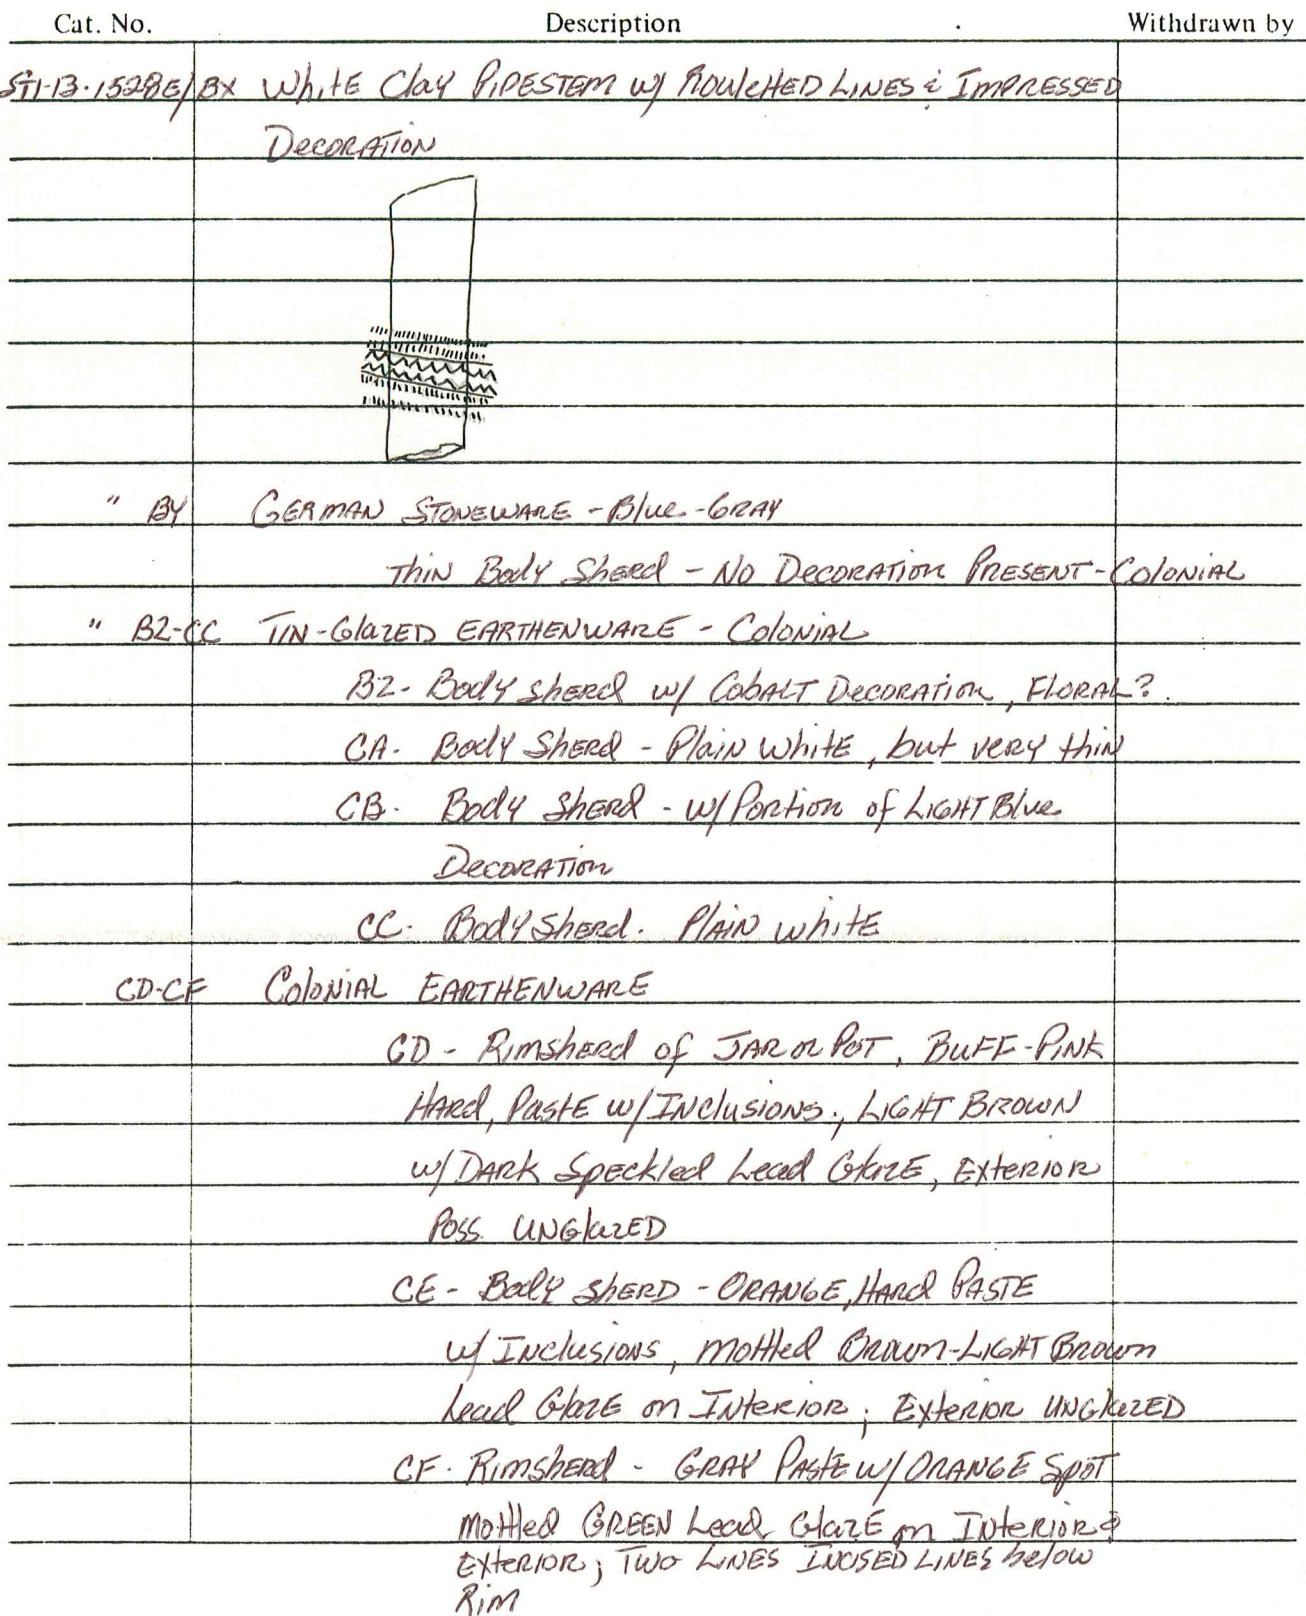 Cat. No. Description Withdrawn by
ST1-13-1528E/BX White Clay Pipestem w/ Roulched Lines & Impressed
Decoration
" BY German Stoneware - Blue-Gray
Thin Body Sherd - No Decoration Present - Colonial
" BZ-CC Tin-Glazed Earthenware - Colonial
BZ- Body sherd w/ Cobalt Decoration, Floral?
CA- Body Sherd - Plain White, but very thin
CB- Body Sherd - w/ Portion of Light Blue
Decoration
CC- Body Sherd. Plain white
CD-CF Colonial Earthenware
CD - Rimsherd of Jar or Pot, Buff-Pink
Hard, Paste w/ Inclusions; Light Brown
w/ Dark Speckled Lead Glaze, Exterior
Poss. Unglazed
CE - Body Sherd - Orange, Hard Paste
w/ Inclusions, Mottled Brown-Light Brown
Lead Glaze on Interior; Exterior Unglazed
CF. Rimsherd - Gray Paste w/ Orange Spot
Mottled Green Lead Glaze on Interior &
Exterior; Two Lines Incised Lines below
Rim